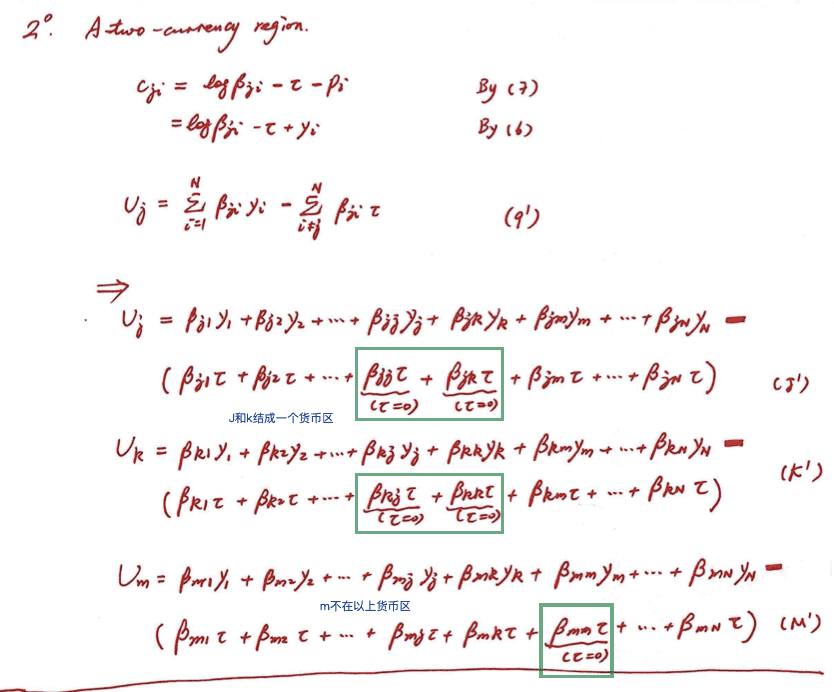 2°. A two-currency region.
c_{ji} = log β_{ji} - τ - p_i By (7)
= log β_{ji} - τ + y_i By (6)
U_j = Σ_{i=1}^{N} β_{ji} y_i - Σ_{i≠j}^{N} β_{ji} τ (9')
⇒
U_j = β_{j1}y_1 + β_{j2}y_2 + ... + β_{jj}y_j + β_{jk}y_k + β_{jm}y_m + ... + β_{jN}y_N -
(β_{j1}τ + β_{j2}τ + ... + β_{jj}τ + β_{jk}τ + β_{jm}τ + ... + β_{jN}τ) (J')
(τ=0) (τ=0)
J和k结成一个货币区
U_k = β_{k1}y_1 + β_{k2}y_2 + ... + β_{kj}y_j + β_{kk}y_k + β_{km}y_m + ... + β_{kN}y_N -
(β_{k1}τ + β_{k2}τ + ... + β_{kj}τ + β_{kk}τ + β_{km}τ + ... + β_{kN}τ) (K')
(τ=0) (τ=0)
U_m = β_{m1}y_1 + β_{m2}y_2 + ... + β_{mj}y_j + β_{mk}y_k + β_{mm}y_m + ... + β_{mN}y_N -
m不在以上货币区
(β_{m1}τ + β_{m2}τ + ... + β_{mj}τ + β_{mk}τ + β_{mm}τ + ... + β_{mN}τ) (M')
(τ=0)